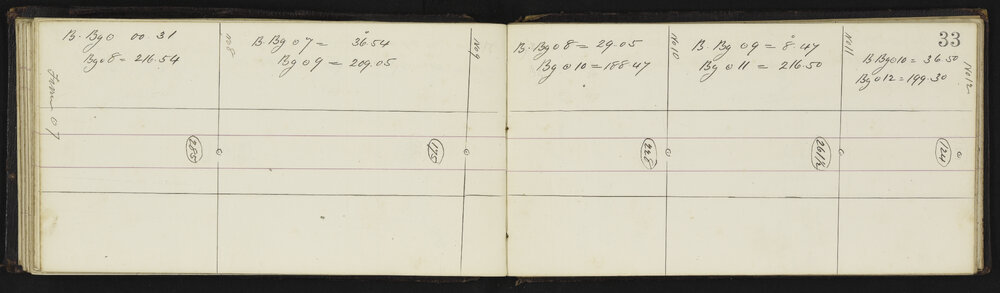 B. Bg o 00.31
Bg o 8 = 216.54
From o 7
285
No 8
B. Bg o 7 = 36.54
Bg o 9 = 209.05
175
No 9
B. Bg o 8 = 29.05
Bg o 10 = 188.47
228
No 10
B. Bg o 9 = 8.47
Bg o 11 = 216.50
261½
No 11
33
B Bg o 10 = 36.50
Bg o 12 = 199.30
124
No 12